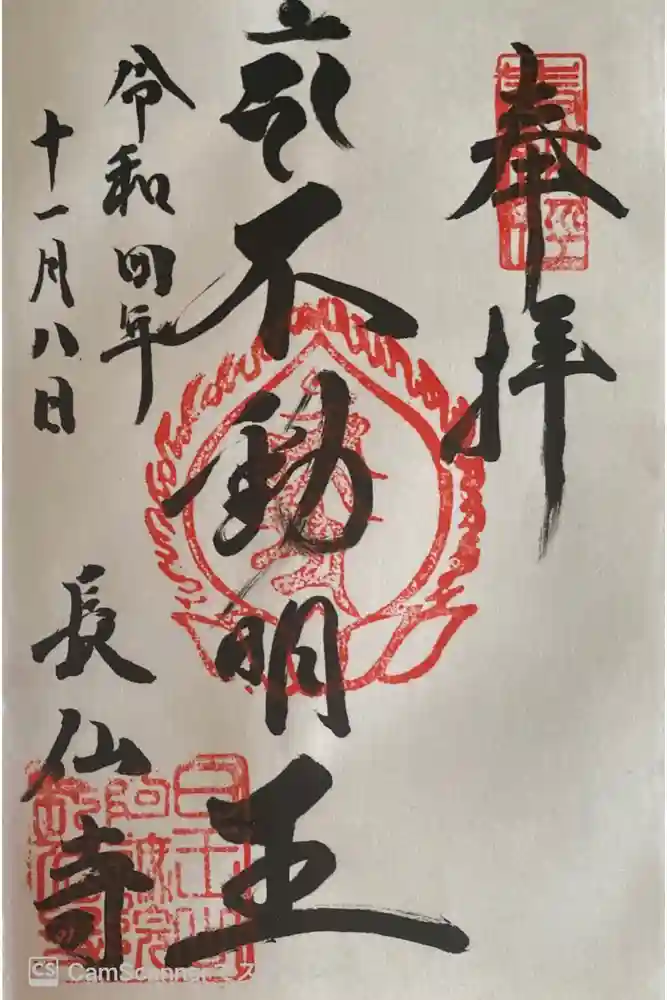 奉拝
不動明王
令和四年
十一月八日
長仙寺
CS CamScanner